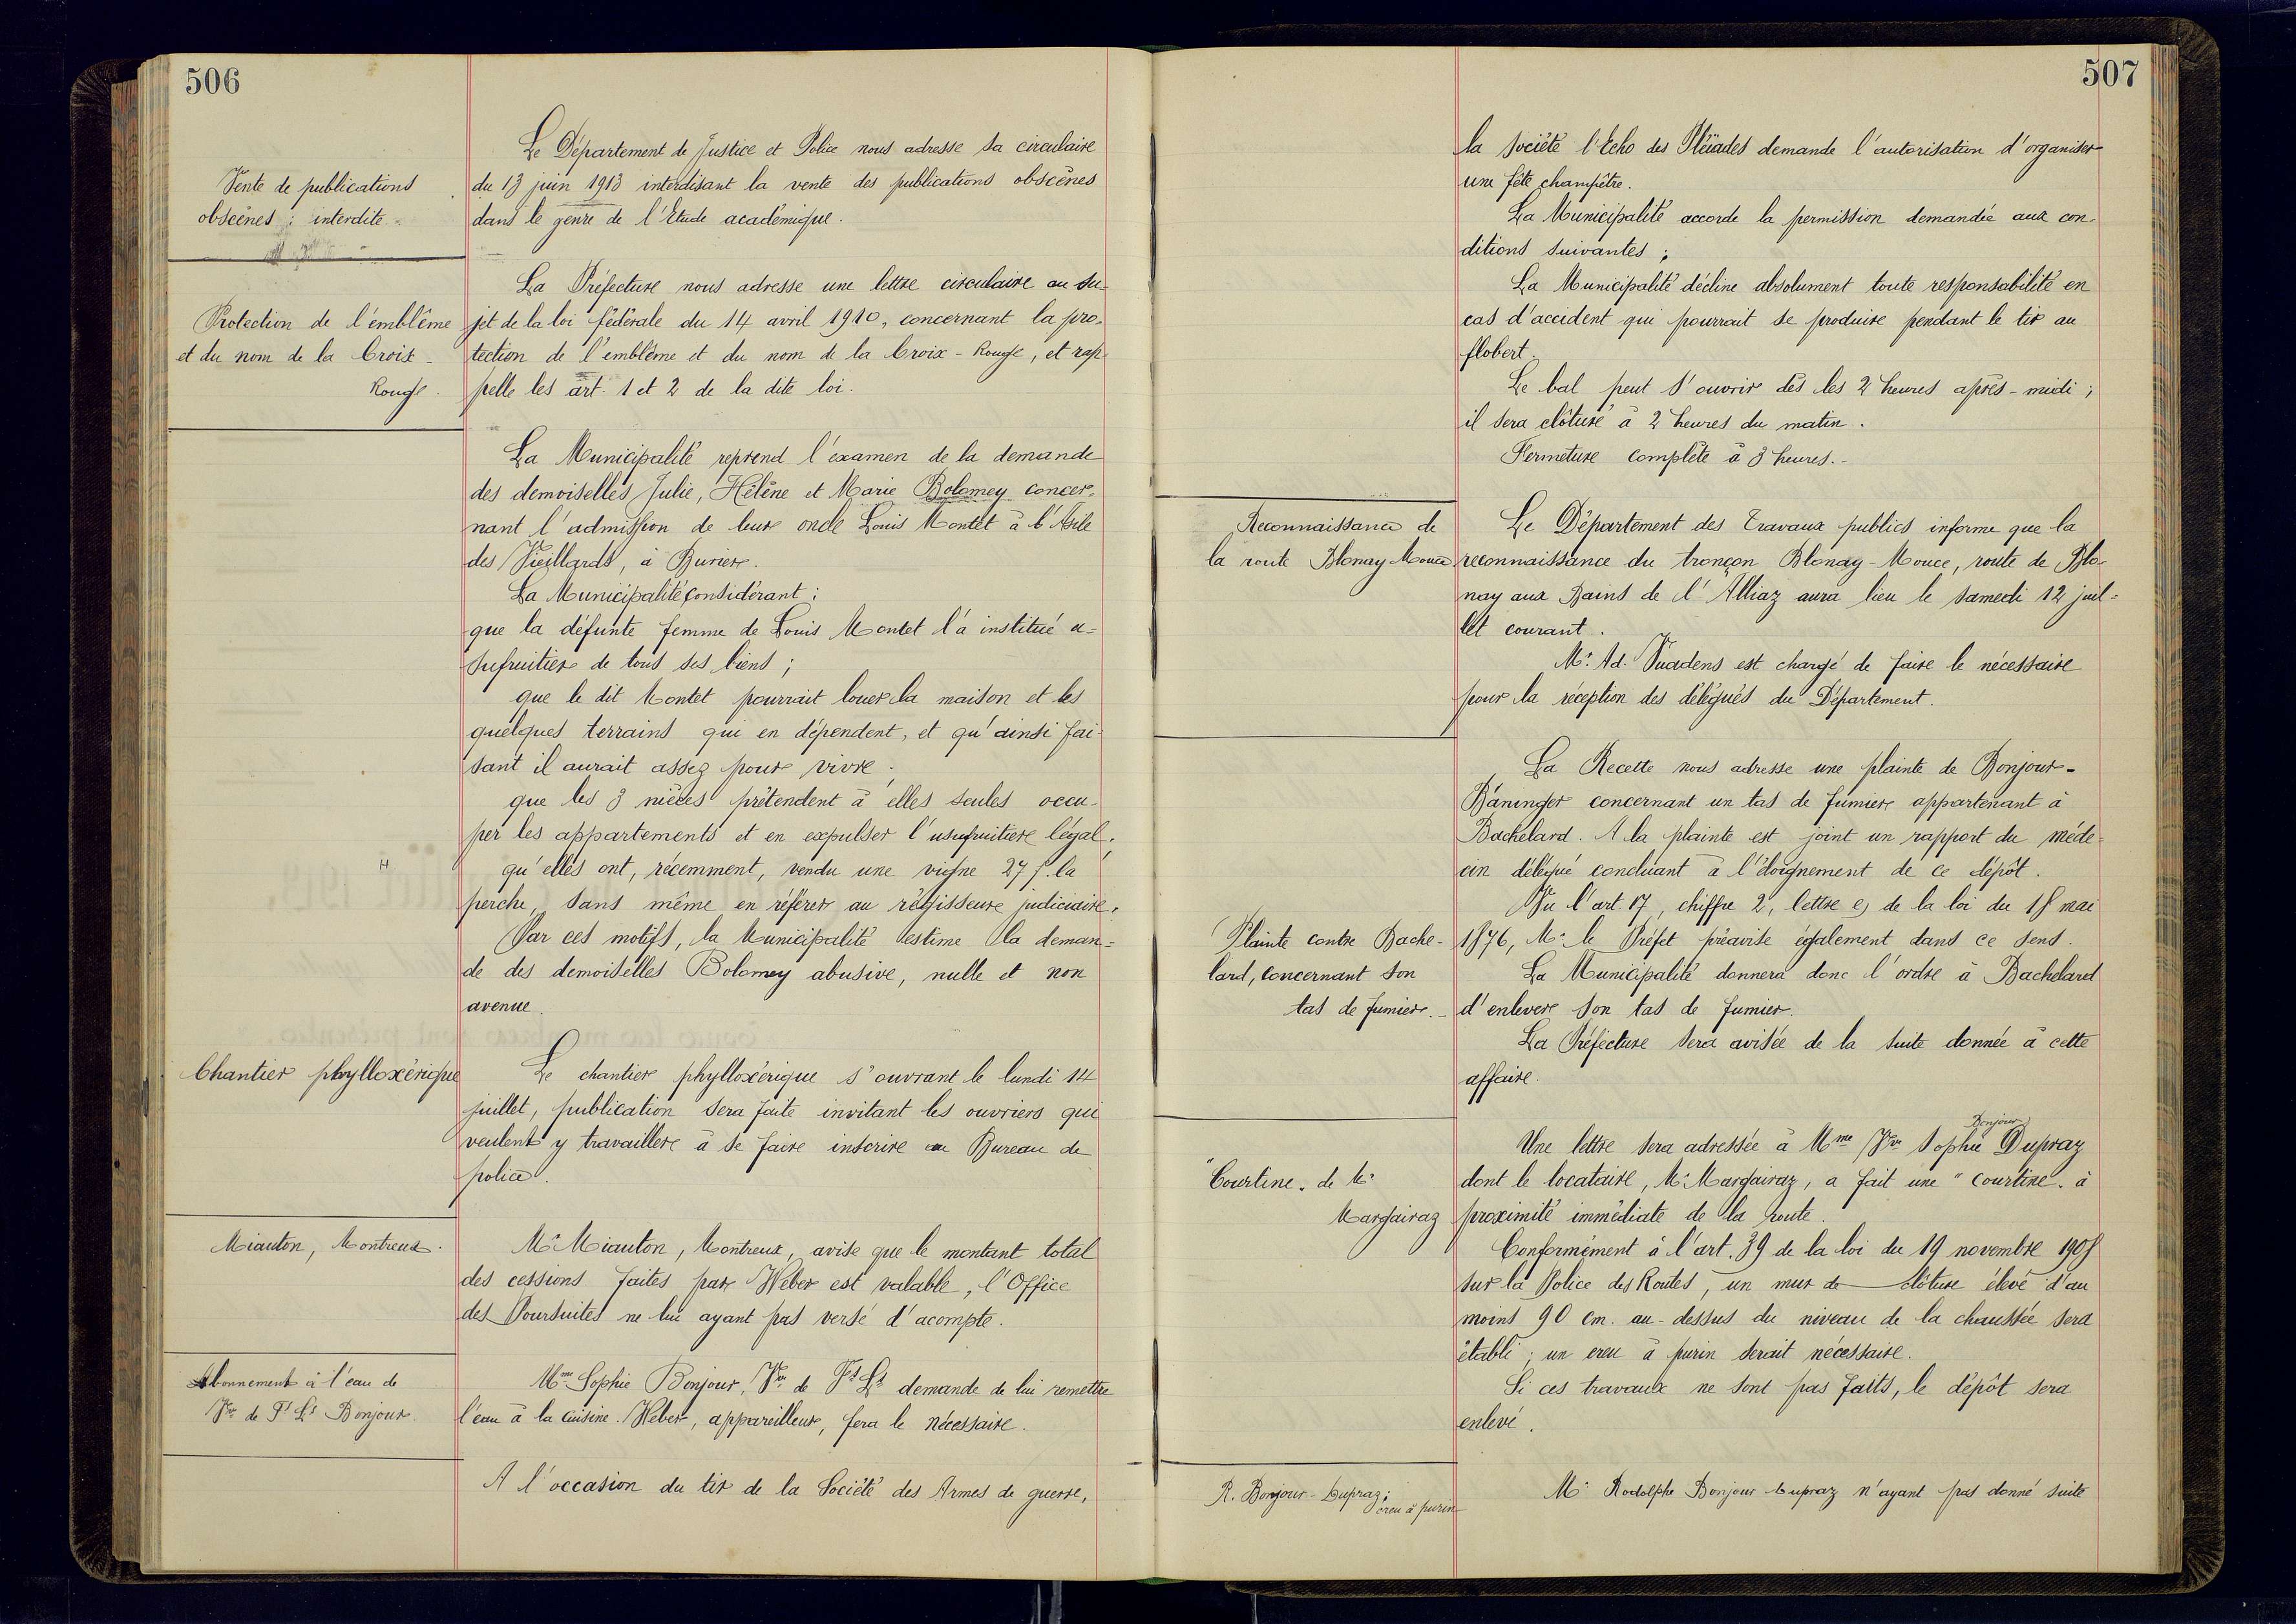 506
Vente de publications
obscènes : interdite.
Le Département de Justice et Police nous adresse sa circulaire
du 13 juin 1913 interdisant la vente des publications obscènes
dans le genre de l'Etude académique.
Protection de l'emblême
et du nom de la Croix-
Rouge.
La Préfecture nous adresse une lettre circulaire au su-
jet de la loi fédérale du 14 avril 1910, concernant la pro-
tection de l'emblême et du nom de la Croix-Rouge, et rap-
pelle les art. 1 et 2 de la dite loi.
La Municipalité reprend l'examen de la demande
des demoiselles Julie, Hélène et Marie Bolomey concer-
nant l'admission de leur oncle Louis Montet à l'Asile
des Vieillards, à Burier.
La Municipalité considérant :
que la défunte femme de Louis Montet l'a institué u-
sufruitier de tous ses biens ;
que le dit Montet pourrait louer la maison et les
quelques terrains qui en dépendent, et qu'ainsi fai-
sant il aurait assez pour vivre ;
que les 3 nièces prétendent à elles seules occu-
per les appartements et en expulser l'usufruitier légal ;
qu'elles ont, récemment, vendu une vigne 27 f. la
perche, sans même en référer au régisseur judiciaire,
Par ces motifs, la Municipalité estime la deman-
de des demoiselles Bolomey abusive, nulle et non
avenue.
Chantier phylloxérique
Le chantier phylloxérique s'ouvrant le lundi 14
juillet, publication sera faite invitant les ouvriers qui
veulent y travailler à se faire inscrire au Bureau de
police.
Miauton, Montreux.
Mr Miauton, Montreux, avise que le montant total
des cessions faites par Weber est valable, l'Office
des Poursuites ne lui ayant pas versé d'acompte.
Abonnement à l'eau de
Vve de Fs Ls Bonjour.
Mme Sophie Bonjour, Vve de Fs Ls demande de lui remettre
l'eau à la cuisine. Weber, appareilleur, fera le nécessaire.
A l'occasion du tir de la Société des Armes de guerre,
507
la société l'Echo des Pléïades demande l'autorisation d'organiser
une fête champêtre.
La Municipalité accorde la permission demandée aux con-
ditions suivantes ;
La Municipalité décline absolument toute responsabilité en
cas d'accident qui pourrait se produire pendant le tir au
flobert.
Le bal peut s'ouvrir dès les 2 heures après-midi ;
il sera clôturé à 2 heures du matin.
Fermeture complète à 3 heures.-
Reconnaissance de
la route Blonay-Mouce
Le Département des Travaux publics informe que la
reconnaissance du tronçon Blonay-Mouce, route de Blo-
nay aux Bains de l'Alliaz aura lieu le samedi 12 juil-
let courant.
Mr. Ad. Vuadens est chargé de faire le nécessaire
pour la réception des délégués du Département.
La Recette nous adresse une plainte de Bonjour-
Bäninger concernant un tas de fumier appartenant à
Bachelard. A la plainte est joint un rapport du méde-
cin délégué concluant à l'éloignement de ce dépôt.
Vu l'art. 17, chiffre 2, lettre e) de la loi du 18 mai
Plainte contre Bache-
lard, concernant son
tas de fumier.-
1876, Mr le Préfet préavise également dans ce sens.
La Municipalité donnera donc l'ordre à Bachelard
d'enlever son tas de fumier.
La Préfecture sera avisée de la suite donnée à cette
affaire.
"Courtine" de Mr
Margairaz
Bonjour
Une lettre sera adressée à Mme Vve Sophie Dupraz
dont le locataire, Mr Margairaz, a fait une "courtine" à
proximité immédiate de la route.
Conformément à l'art. 39 de la loi du 19 novembre 1908
sur la Police des Routes, un mur de clôture élevé d'au
moins 90 cm. au-dessus du niveau de la chaussée sera
établi ; un creu à purin serait nécessaire.
Si ces travaux ne sont pas faits, le dépôt sera
enlevé.
R. Bonjour-Dupraz ;
creu à purin
Mr Rodolphe Bonjour Dupraz n'ayant pas donné suite